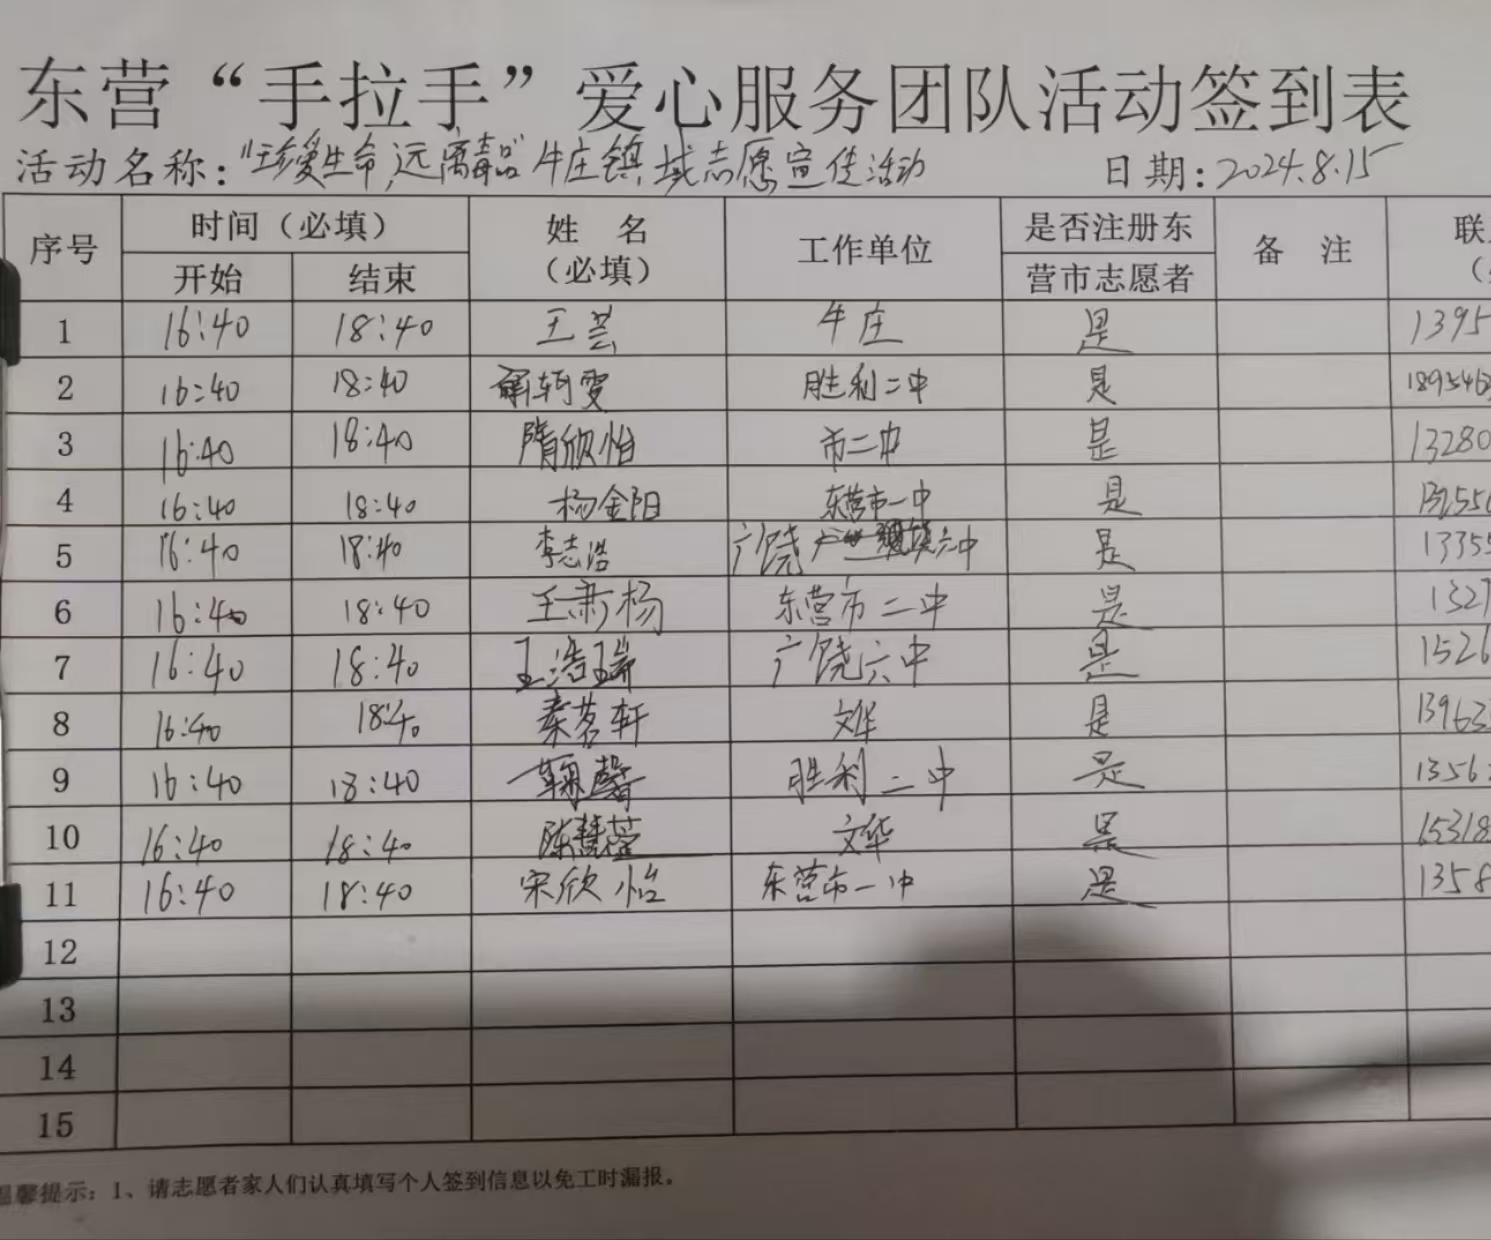 东营“手拉手”爱心服务团队活动签到表
活动名称：“珍爱生命，远离毒品”牛庄镇域志愿宣传活动 日期：2024.8.15
序号 时间（必填） 姓 名（必填） 工作单位 是否注册东营市志愿者 备 注 联
开始 结束
1 16:40 18:40 王芸 牛庄 是 1395
2 16:40 18:40 解轲雯 胜利二中 是 189546
3 16:40 18:40 隋欣怡 市二中 是 13280
4 16:40 18:40 杨金阳 东营市一中 是 13255
5 16:40 18:40 李志浩 广饶 六中 是 1335
6 16:40 18:40 王肃杨 东营市二中 是 1327
7 16:40 18:40 王浩瑞 广饶六中 是 1526
8 16:40 18:40 秦茗轩 文华 是 13963
9 16:40 18:40 鞠馨 胜利二中 是 1356
10 16:40 18:40 陈慧莹 文华 是 15318
11 16:40 18:40 宋欣怡 东营市一中 是 1358
12
13
14
15
温馨提示：1、请志愿者家人们认真填写个人签到信息以免工时漏报。